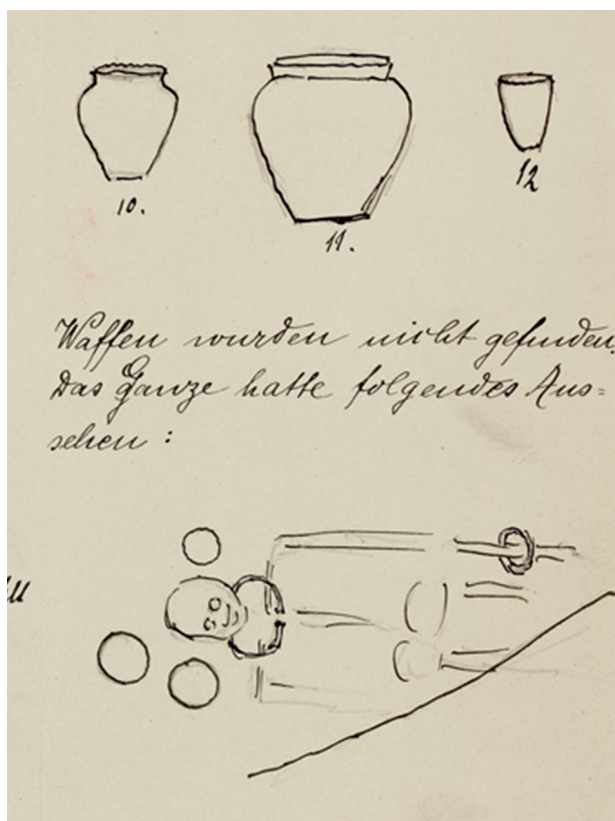 10.
11.
12
Waffen wurden nicht gefunden.
Das Ganze hatte folgendes Aus=
sehen :